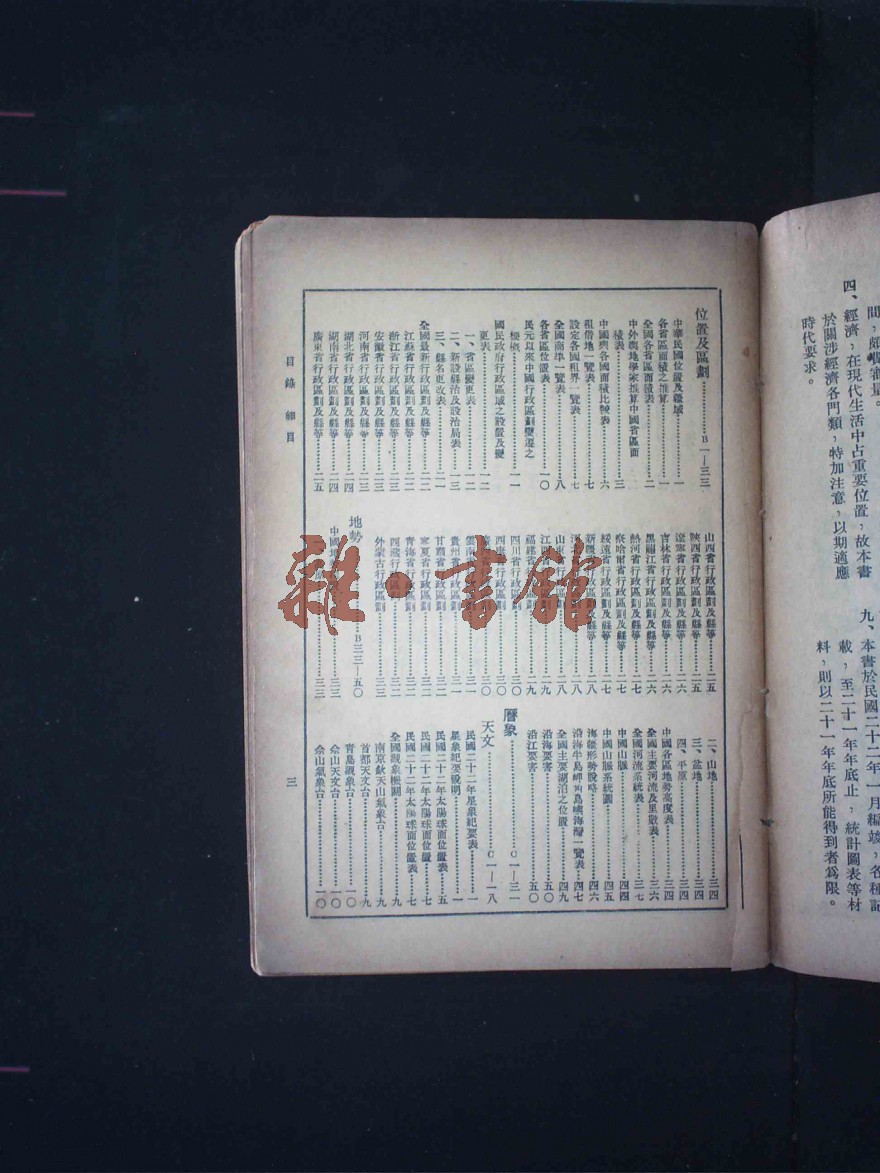 間，頗費審量。
四、經濟，在現代生活中占重要位置，故本書
於關涉經濟各門類，特加注意，以期適應
時代要求。
九、本書於民國二十二年一月編竣，各種記
載，至二十一年年底止，統計圖表等材
料，則以二十一年年底所能得到者爲限。
位置及區劃…………B一—三三
中華民國位置及疆域…………一
各省區面積之推算…………一
全國各省區面積…………二
中外輿地學家推算中國省區面
積表…………三
中國與各國面積比較表…………六
租借地一覽表…………七
設定各國租界一覽表…………七
全國商埠一覽表…………八
各省區位置表…………一〇
民元以來中國行政區劃變遷之
梗概…………一一
國民政府行政區域之設置及變
更表…………一二
一、省區變更表…………一二
二、新設縣治及設治局表…………一三
三、縣名更改表…………二一
全國最新行政區劃及縣等…………二二
江蘇省行政區劃及縣等…………二二
浙江省行政區劃及縣等…………二三
安徽省行政區劃及縣等…………二三
河南省行政區劃及縣等…………二三
湖北省行政區劃及縣等…………二四
湖南省行政區劃及縣等…………二四
廣東省行政區劃及縣等…………二五
山西省行政區劃及縣等…………二五
陝西省行政區劃及縣等…………二五
遼寧省行政區劃及縣等…………二六
吉林省行政區劃及縣等…………二六
黑龍江省行政區劃及縣等…………二六
熱河省行政區劃及縣等…………二七
察哈爾省行政區劃及縣等…………二七
綏遠省行政區劃及縣等…………二七
新疆省行政區劃及縣等…………二七
河
山東
江西
福建省行政區劃
四川省行政區劃…………三〇
西康
雲南省行政區劃
貴州省行政區劃…………三一
甘肅省行政區劃…………三二
寧夏省行政區劃…………三二
青海省行政區劃…………三二
西藏行政區劃…………三二
外蒙古行政區劃…………三二
地勢…………B三三—五〇
中國地…………三三
一、…………三三
二、山地…………三四
三、盆地…………三四
四、平原…………三四
中國各區地勢高度表…………三四
全國主要河流及里數表…………三六
全國河流系統表…………三七
中國山脈…………四四
中國山脈系統圖…………四五
海疆形勢說略…………四六
沿海半島岬角島嶼海灣一覽表…………四七
全國主要湖泊之位置…………四九
沿海要害…………五〇
沿江要害…………五〇
曆象…………C一—三一
天文…………C一—一八
民國二十二年星象紀要表…………一
星象紀要說明…………一
民國二十二年太陽球面位置表…………五
民國二十二年太陽球面位置表…………七
全國觀象機關…………九
南京欽天山氣象台…………九
首都天文台…………九
青島觀象台…………一〇
佘山天文台…………一〇
佘山氣象台…………一〇
目錄 細目
三
雜·書館